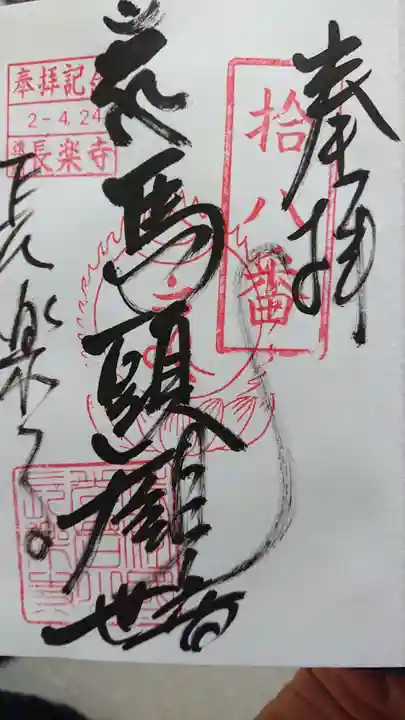 奉拝
拾八番
馬頭観世音
奉拝記念
2-4.24
長楽寺
長楽寺